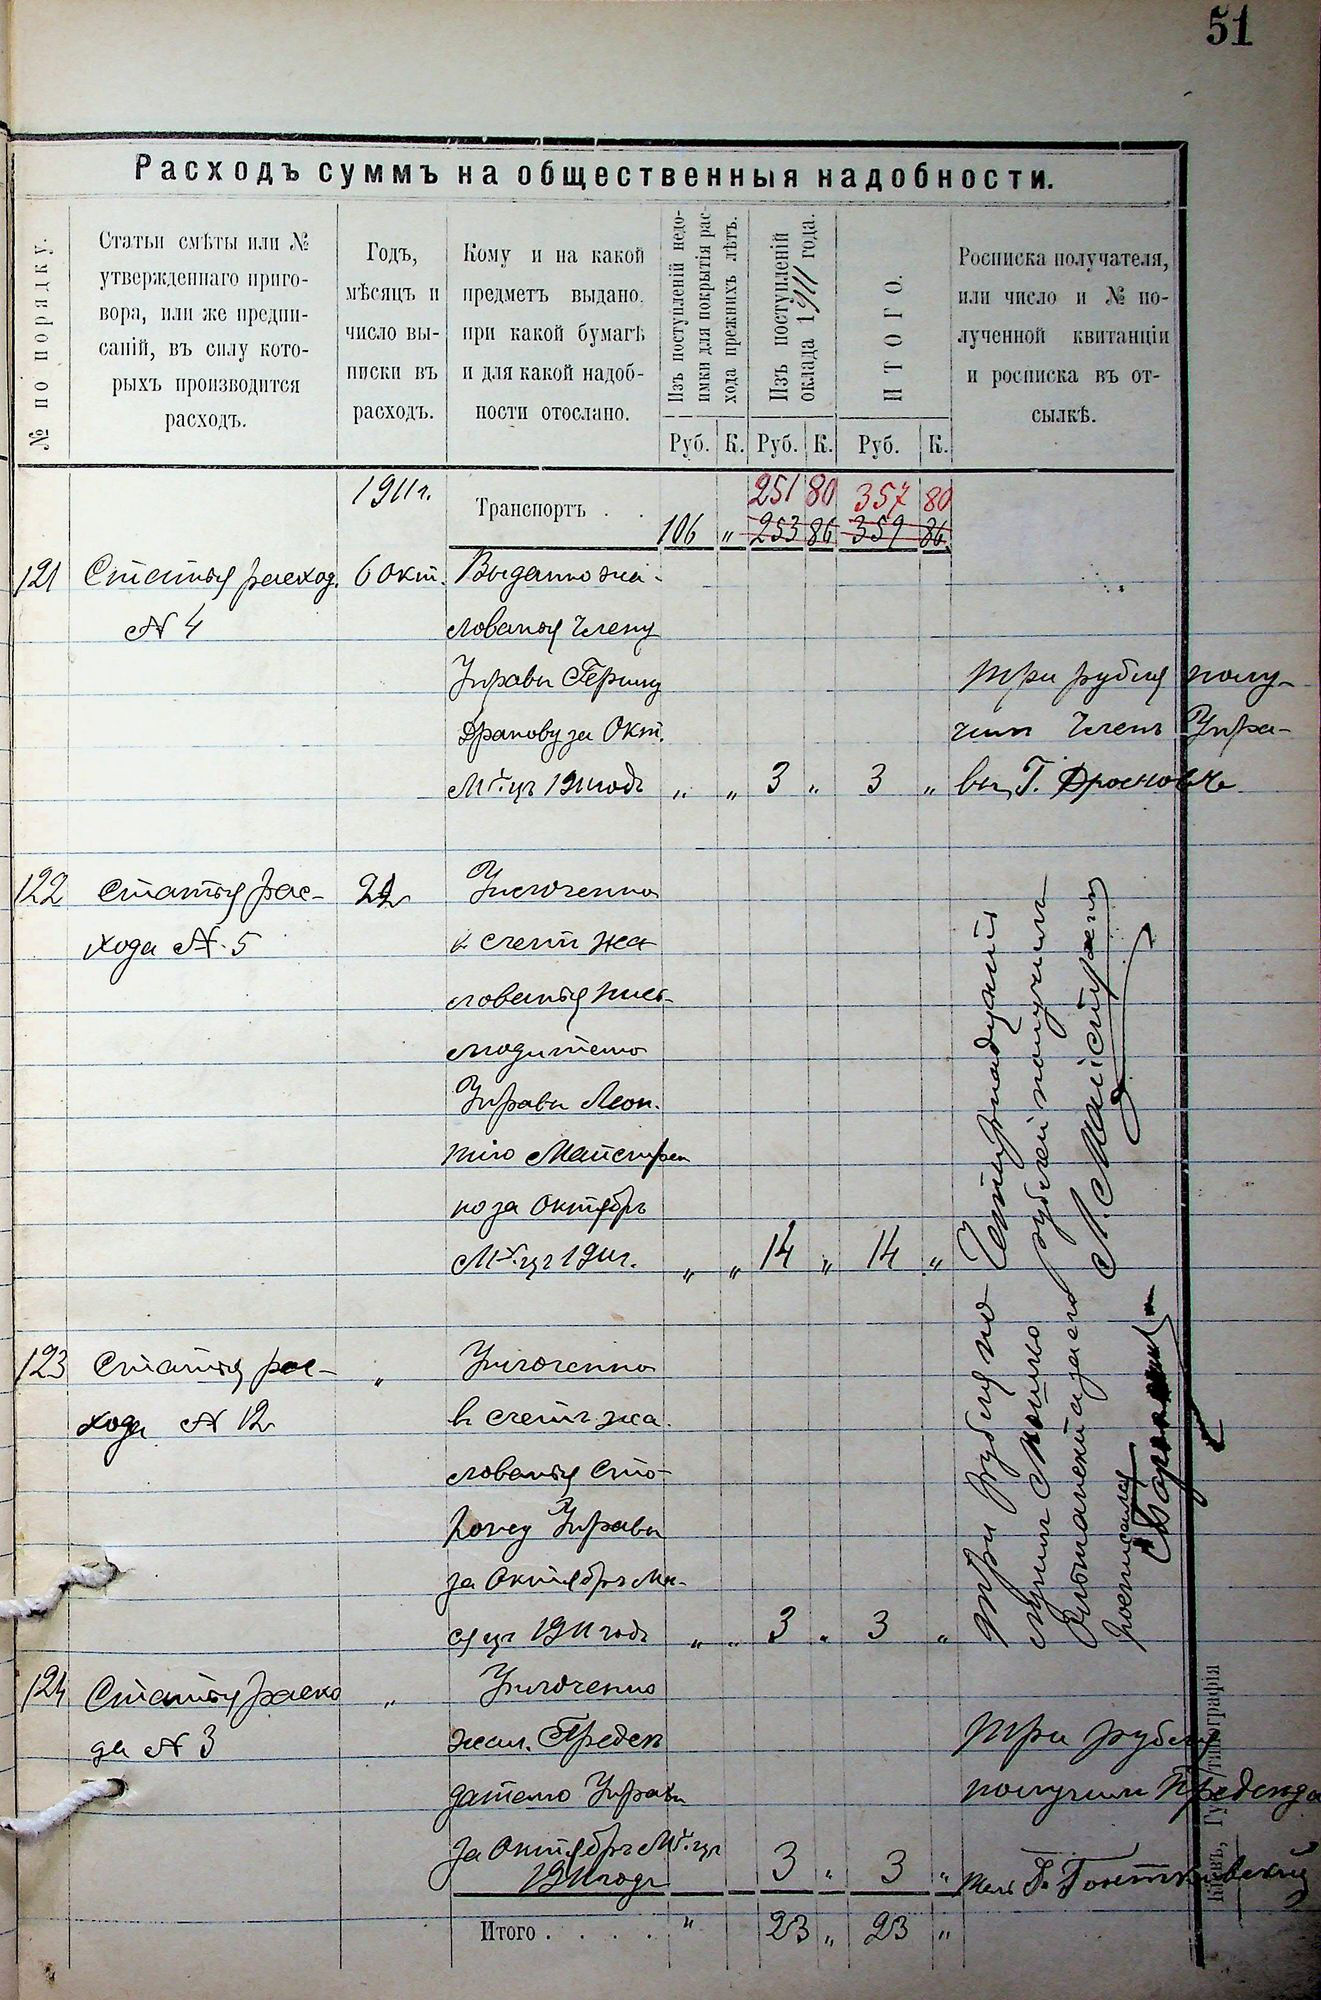 51
Расходъ суммъ на общественныя надобности.
№ по порядку.
Статьи смѣты или №
утвержденнаго приго-
вора, или же предпи-
саній, въ силу кото-
рыхъ производится
расходъ.
Годъ,
мѣсяцъ и
число вы-
писки въ
расходъ.
Кому и на какой
предметъ выдано,
при какой бумагѣ
и для какой надоб-
ности отослано.
Изъ поступленій недо-
имки для покрытія рас-
хода прежнихъ лѣтъ.
Изъ поступленій
оклада 1911 года.
ИТОГО.
Росписка получателя,
или число и № по-
лученной квитанціи
и росписка въ от-
сылкѣ.
Руб. К. Руб. К. Руб. К.
1911 г.
251 80 357 80
Транспортъ . .
106 „ 253 86 359 86
121 Статья расход. 6 Окт. Выдано жа-
№ 4 лованья Члену
Управы
за Окт.
три рубля полу-
чил Членъ Упра-
Мѣ-цъ 1911 годъ „ „ 3 „ 3 „ вы, Г.
122 Статья рас- 22 Уплоченно
хода № 5 в счетъ жа
лованья пись-
моводителю
Управы Леон-
тію Майстрен
ко за Октябрь
М-ц 1911 г. „ „ 14 „ 14 „
Четырнадцать
рублей получилъ
Л. Майстренко
123 Статья рас- „ Уплоченно
хода № 12 в счетъ жа
лованья сто-
рожу Управы
за Октябрь мѣ-
сяцъ 1911 годъ „ „ 3 „ 3 „
три рубля по
лучил
росписался
124 Статья расхо „ Уплоченно
да № 3 жал. Предсѣ
дателю Управы
за Октябрь Мѣ-ц
1911 годъ 3 „ 3 „
Три рубля
получилъ Предсѣда
тель
Итого . . . . „ 23 „ 23 „
Кіевъ, Гу типографія